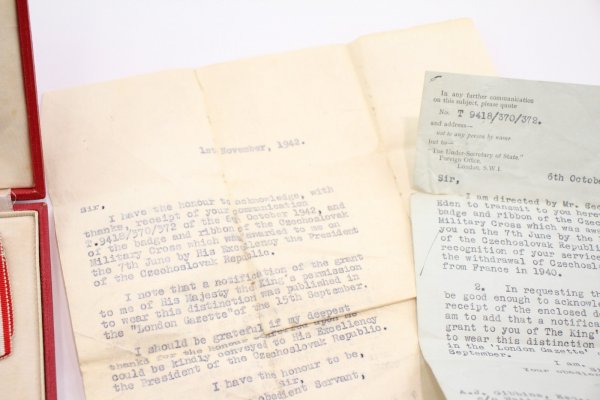 1st November, 1942.
Sir,
I have the honour to acknowledge, with
thanks, receipt of your communication
T.9418/370/372 of the 6th October 1942, and
of the badge and ribbon of the Czechoslovak
Military Cross which was awarded to me on
the 7th June by His Excellency the President
of the Czechoslovak Republic.
I note that a notification of the grant
to me of His Majesty the King's permission
to wear this distinction was published in
the "London Gazette" of the 15th September.
I should be grateful if my deepest
thanks for the honour conferred upon me
could be kindly conveyed to His Excellency
the President of the Czechoslovak Republic.
I have the honour to be,
Sir,
obedient Servant,
In any further communication
on this subject, please quote
No. T 9418/370/372.
and address—
not to any person by name
but to—
"The Under-Secretary of State,"
Foreign Office,
London, S.W.1.
6th October
Sir,
I am directed by Mr. Sec
Eden to transmit to you here
badge and ribbon of the Czech
Military Cross which was awa
you on the 7th June by the
of the Czechoslovak Republi
recognition of your service
the withdrawal of Czechoslo
from France in 1940.
2. In requesting th
be good enough to acknowle
receipt of the enclosed de
am to add that a notifica
grant to you of The King'
to wear this distinction
in the 'London Gazette'
September.
I am, Si
Your obedie
A.J. Gibbins, Esq.